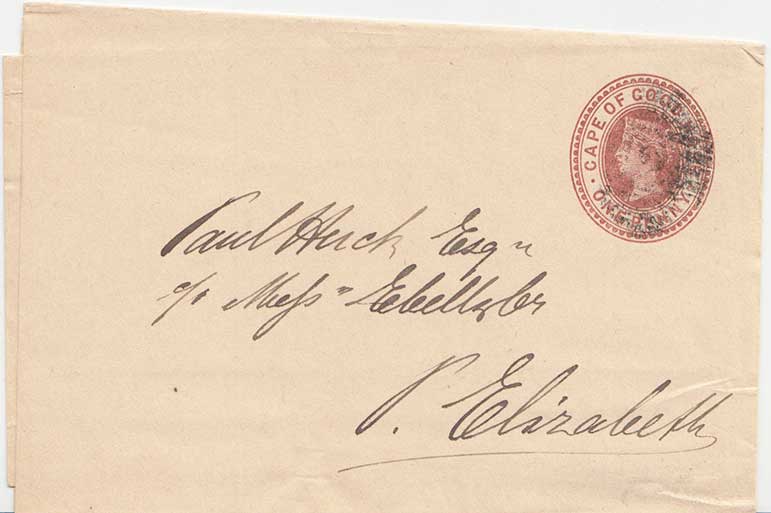 CAPE OF GOOD HOPE
ONE PENNY
Paul Huck Esqr
c/o Messrs
P. Elizabeth